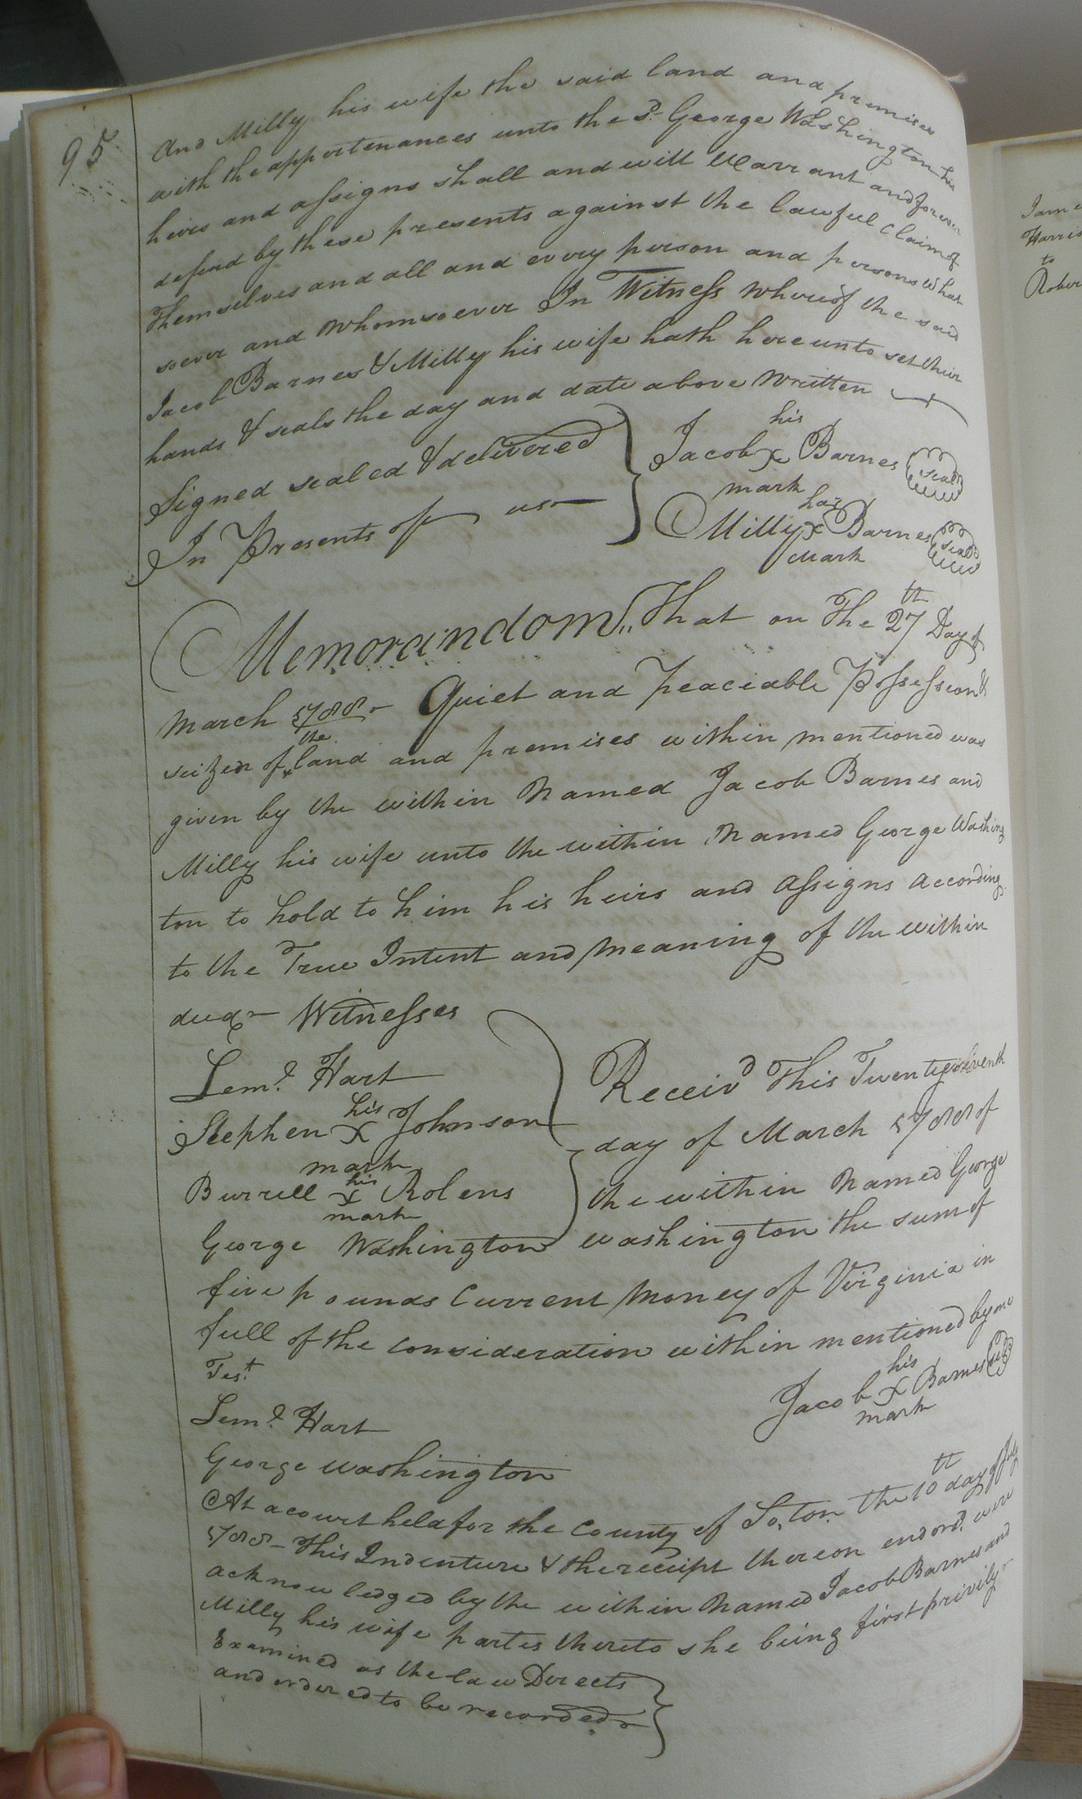 95
And Milly his wife the said land and premises
with the appertenances unto the sd. George Washington his
heirs and assigns shall and will Warrant and forever
defend by these presents against the lawful claim of
themselves and all and every person and persons what
soever and whomsoever In Witness whereof the said
Jacob Barnes & Milly his wife hath hereunto set their
hands & seals the day and date above Written
Signed sealed & delivered
In Presents of us
his
Jacob X Barnes seal
mark
her
Milly X Barnes seal
Mark
Memorandom,, That on The 27th Day of
March 1788 - Quiet and Peaciable Possession &
seizen of the land and premises within mentioned was
given by the within Named Jacob Barnes and
Milly his wife unto the within Named George Washing
ton to hold to him his heirs and Assigns According
to the True Intent and Meaning of the within
deed - Witnesses
Leml. Hart
his
Stephen X Johnson
mark
his
Burrell X Rolens
mark
George Washington
Receivd This Twenty seventh
day of March 1788 of
the within Named George
Washington the sum of
five pounds Current Money of Virginia in
full of the consideration within mentioned by me
Test.
his
Jacob X Barnes
mark
Leml. Hart
George Washington
At a court held for the County of So,ton the 10th day of July
1788 - This Indenture & the receipt thereon endord. were
acknowledged by the within Named Jacob Barnes and
Milly his wife parties thereto she being first privily
Examined as the law Directs
and ordered to be recorded
Harris
to